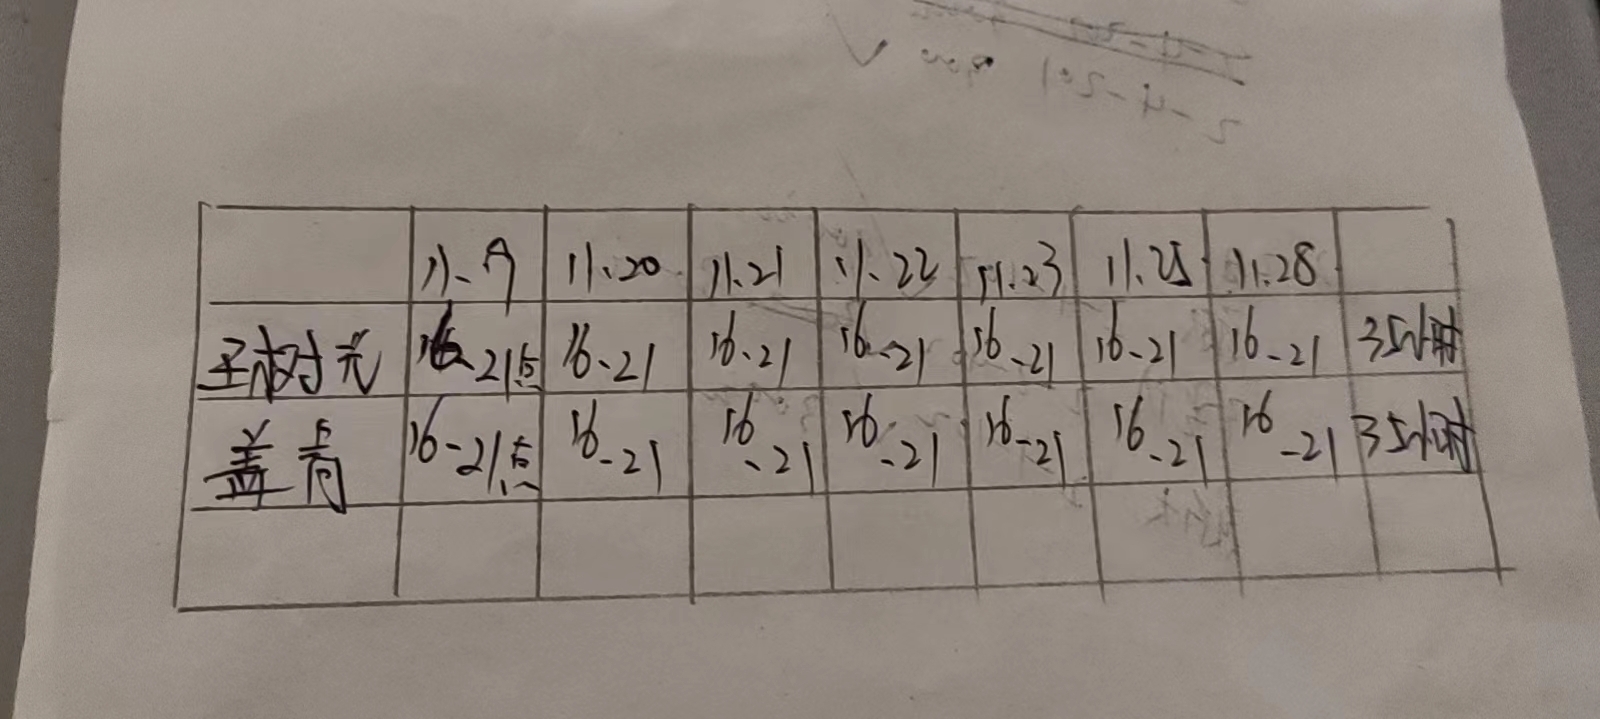 11.9 11.20 11.21 11.22 11.23 11.25 11.28
16-21点 16-21 16-21 16-21 16-21 16-21 16-21 35小时
盖 16-21点 16-21 16-21 16-21 16-21 16-21 16-21 35小时